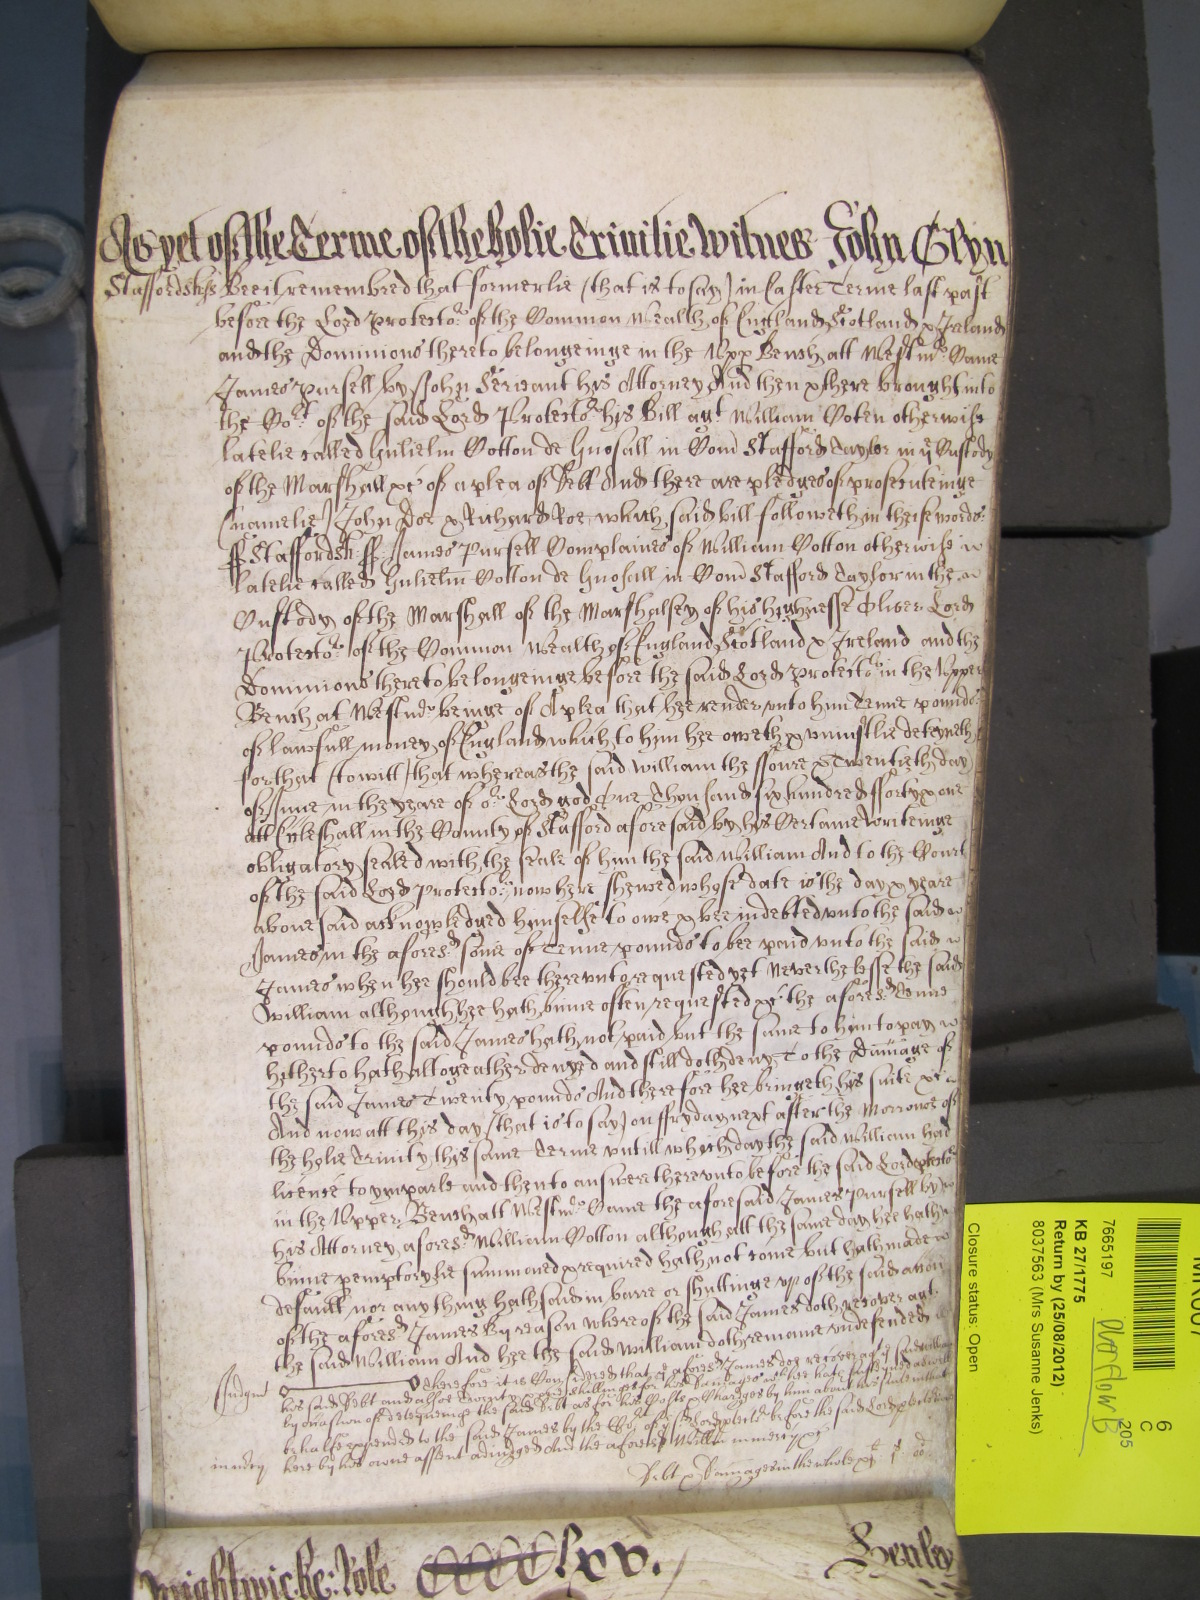 As yet of the Terme of the holie Trinitie Witnes John Glyn
Staffordsh ss Bee it remembred that formerlie (that is to say) in Easter Terme last past
before the Lord Protector of the Common Wealth of England Scotland & Ireland
and the Dominions thereto belongeinge in the Upp Bench att Westmr Came
James Pursell by John Servant his Attorney And then & there brought into
the Cort of the said Lord Protector his Bill agt William Coten otherwise
latelie called Gulielm Cotton de Gnosall in Com Stafford Taylor in ye Custody
of the Marshall &c of a plea of Debt And there are pledges of prosecuteinge
(namelie) John Doe & Richard Roe which said bill followeth in theise words:
ss Staffordsh ss James Pursell Complaines of William Cotton otherwise
latelie called Gulielm Cotton de Gnosall in Com Stafford Taylor in the
Custody of the Marshall of the Marshalsey of his highnesse Oliver Lord
Protector of the Common Wealth of England Scotland & Ireland and the
Dominions thereto belongeinge before the said Lord Protector in the Upper
Bench at Westmr beinge of A plea that hee render unto him Tenne pounds
of lawfull money of England which to him hee oweth & uniustlie deteyneth
for that (to witt) that whereas the said William the ffoure & Twentieth day
of June in the yeare of or Lord god One Thousand six hundred fforty & one
att Eccleshall in the County of Stafford aforesaid by his Certaine Writeinge
obligatory sealed with the seale of him the said William And to the Court
of the said Lord Protector now here shewed whose date is the day & yeare
above said acknowledged himselfe to owe & bee indebted unto the said
James in the aforesd some of Tenne pounds to bee paid unto the said
James when hee should bee thereunto requested yet Neverthelesse the said
William although hee hath binne often requested &c the aforesd Tenne
pounds to the said James hath not paid but the same to him to pay
hetherto hath alltogeather denyed and still doth deny To the Damage of
the said James Twenty pounds And therefore hee bringeth his suite &c
And now att this day (that is to say) on ffryday next after the Morrowe of
the holie Trinity this same Terme untill which day the said William had
licence to imparle and then to answere thereunto before the said Lord Protector
in the Upper Bench att Westmr Came the aforesaid James Pursell by
his Attorney aforesd William Cotton although att the same day hee hath
binne pemptorylie summoned & required hath not come but hath made
default nor anything hath said in barre or shuttinge up of the said accon
of the aforesd James By reason whereof the said James doth recover agt
the said William And hee the said William doth remaine undefended
Judgmt Therefore it is Considered that ye aforesd James doe recover agt ye said William
his said Debt and alsoe Twenty & one shillings for his Damages wch hee hath susteyned aswell
by occasion of deteyneinge the said Debt as for his Costs & Charges by him about his suite in that
behalfe expended to the said James by the Cort of ye sd Lord before the said Lord
in mcy here by his owne assent adiudged And the aforesd William in mercy &c
Debt & Damages in the whole
Wightwicke: Role CCCClxv. Henley
6
C
205
7665197
KB 27/1775
Return by (25/08/2012)
8037563 (Mrs Susanne Jenks)
Closure status: Open